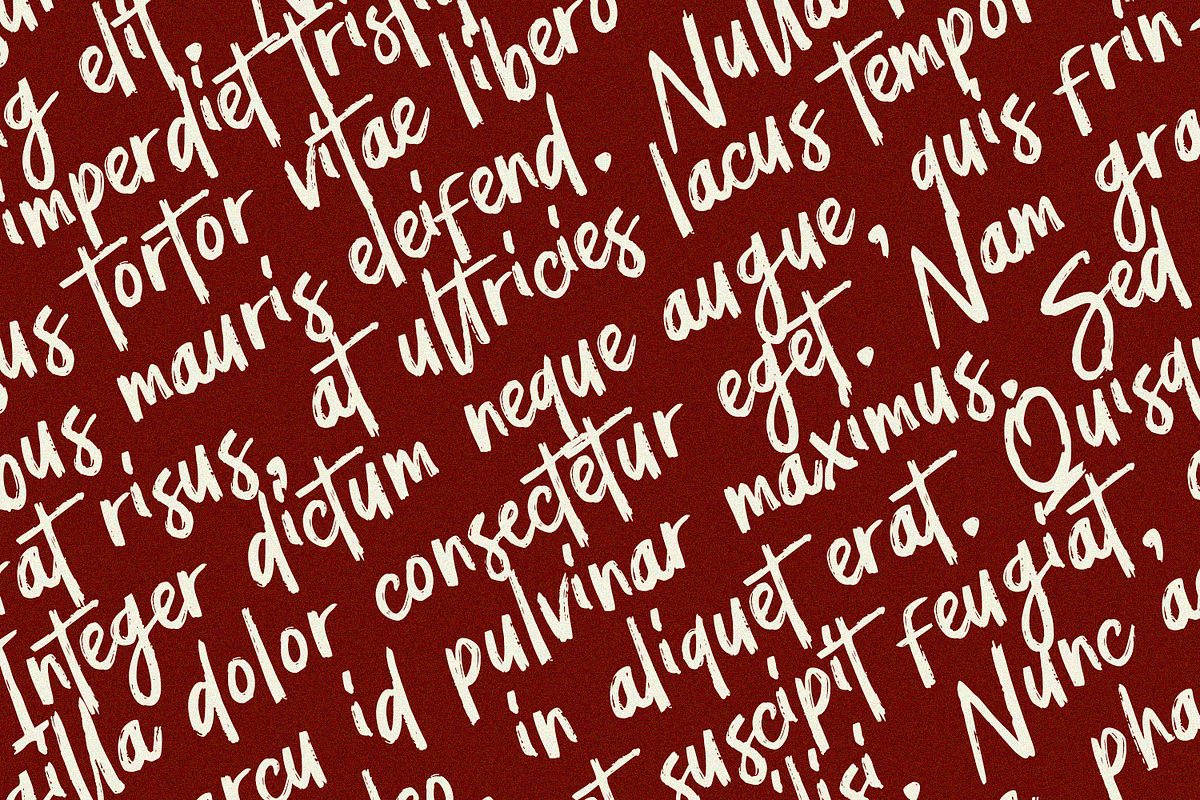 ng elit.
imperdiet tristi
us tortor vitae libero
bus mauris eleifend. Nulla
rat risus, at ultricies lacus tempor
Integer dictum neque augue, quis frin-
gilla dolor consectetur eget. Nam gra
arcu id pulvinar maximus. Sed
leo in aliquet erat. Quisq
suscipit feugiat,
ilisi. Nunc a
pha